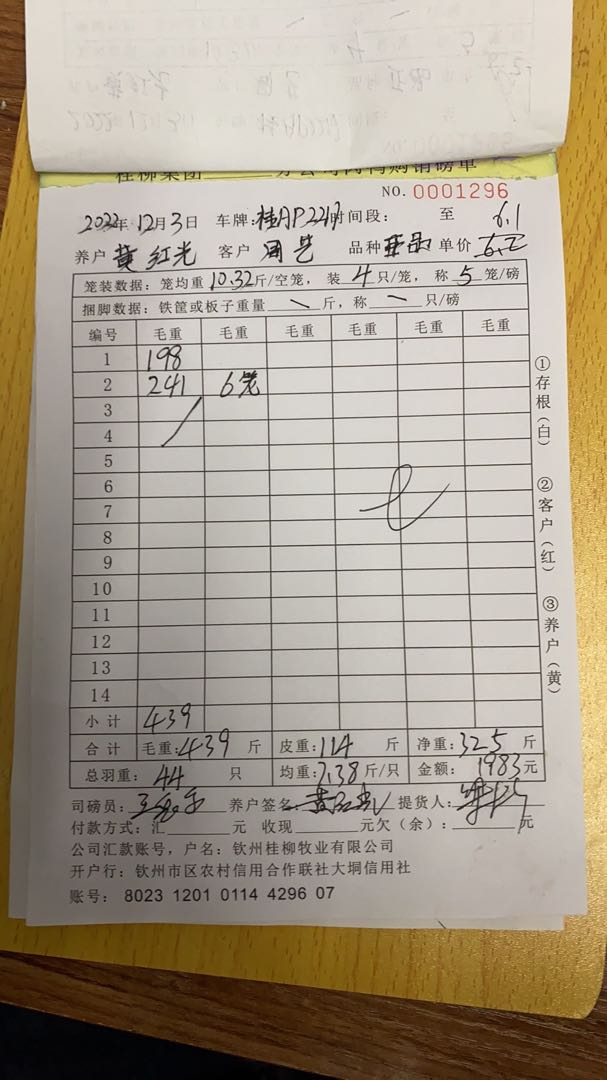 桂柳集团 分公司肉鸭购销磅单
NO. 0001296
2022年12月3日 车牌: 时间段: 至 6.1
养户 黄红光 客户 品种 单价 6.2
笼装数据: 笼均重 10.32 斤/空笼, 装 4 只/笼, 称 5 笼/磅
捆脚数据: 铁筐或板子重量 \ 斤, 称 \ 只/磅
编号 毛重 毛重 毛重 毛重 毛重 毛重
1 198
2 241 6笼
3
4
5
6
7
8
9
10
11
12
13
14
小计 439
合计 毛重:439 斤 皮重:114 斤 净重:325 斤
总羽重: 44 只 均重:7.38斤/只 金额: 1983元
司磅员: 养户签名: 提货人:
付款方式:汇 元 收现 元欠(余): 元
公司汇款账号,户名:钦州桂柳牧业有限公司
开户行:钦州市区农村信用合作联社大垌信用社
账号: 8023 1201 0114 4296 07
①存根(白)
②客户(红)
③养户(黄)